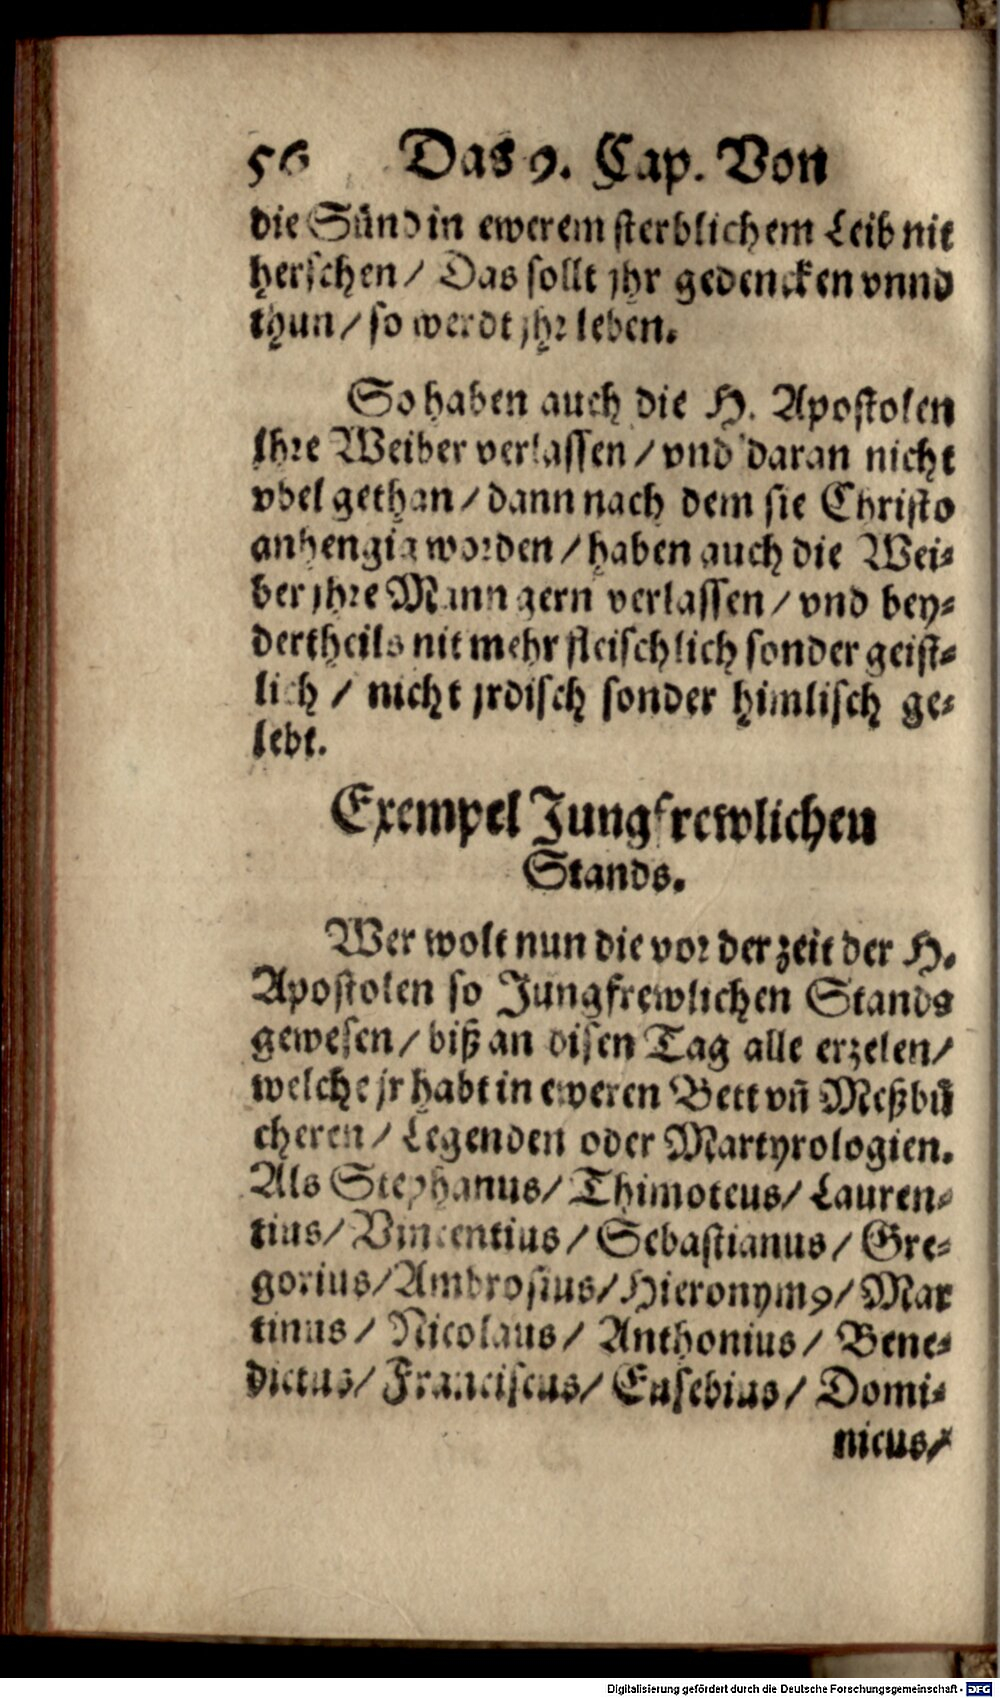 56 Das 9. Cap. Von
die Sünd in ewerem sterblichem Leib nit
herschen / Das sollt jhr gedencken vnnd
thun / so werdt jhr leben.
So haben auch die H. Apostolen
Ihre Weiber verlassen / vnd daran nicht
vbel gethan / dann nach dem sie Christo
anhengig worden / haben auch die Wei-
ber jhre Mann gern verlassen / vnd bey-
dertheils nit mehr fleischlich sonder geist-
lich / nicht jrdisch sonder himlisch ge-
lebt.
Exempel Jungfrewlichen
Stands.
Wer wolt nun die vor der zeit der H.
Apostolen so Jungfrewlichen Stands
gewesen / biß an disen Tag alle erzelen /
welche jr habt in eweren Bett vñ Meßbü
cheren / Legenden oder Martyrologien.
Als Stephanus / Thimoteus / Lauren-
tius / Vincentius / Sebastianus / Gre-
gorius / Ambrosius / Hieronymꝰ / Mar
tinus / Nicolaus / Anthonius / Bene-
dictus / Franciscus / Eusebius / Domi-
nicus /
Digitalisierung gefördert durch die Deutsche Forschungsgemeinschaft - DFG